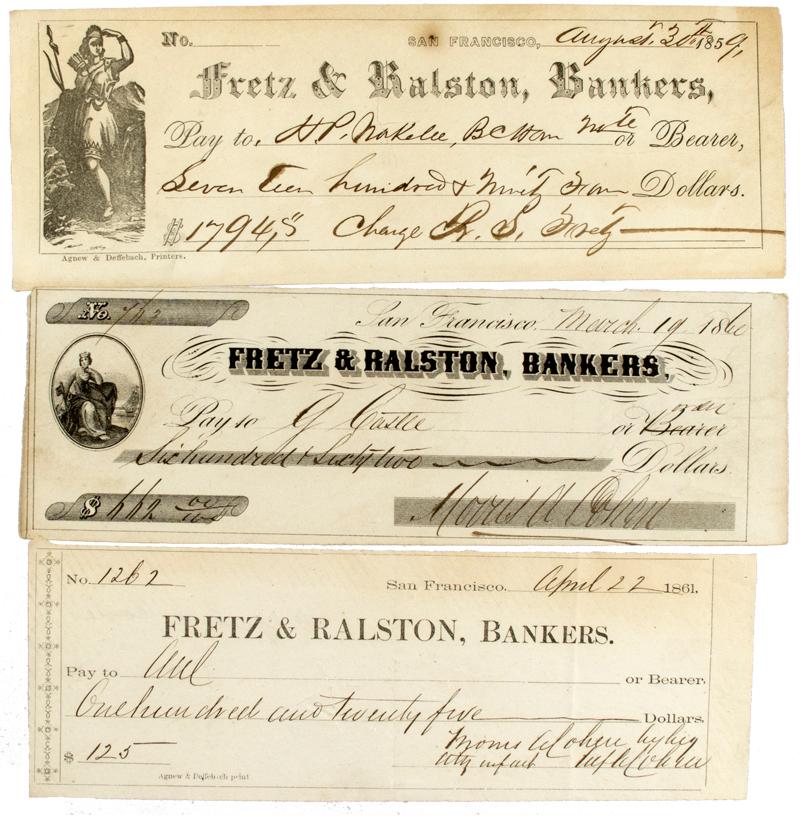 No. SAN FRANCISCO, August 30th 1859,
Fretz & Ralston, Bankers,
Pay to, H P. Wakelee, or Bearer,
Seventeen hundred & Ninety Four Dollars.
$1794, Charge R. S. Fretz
Agnew & Deffebach, Printers.
No. San Francisco. March 19 1860
FRETZ & RALSTON, BANKERS,
Pay to G Castle or Bearer order
Six hundred & Sixty two Dollars
$ 662 00/100 Morris A Cohen
No. 1262 San Francisco. April 22 1861.
FRETZ & RALSTON, BANKERS.
Pay to or Bearer.
One hundred and twenty five Dollars.
$ 125 Morris A Cohen by his
Atty in fact Cohen
Agnew & Deffebach print